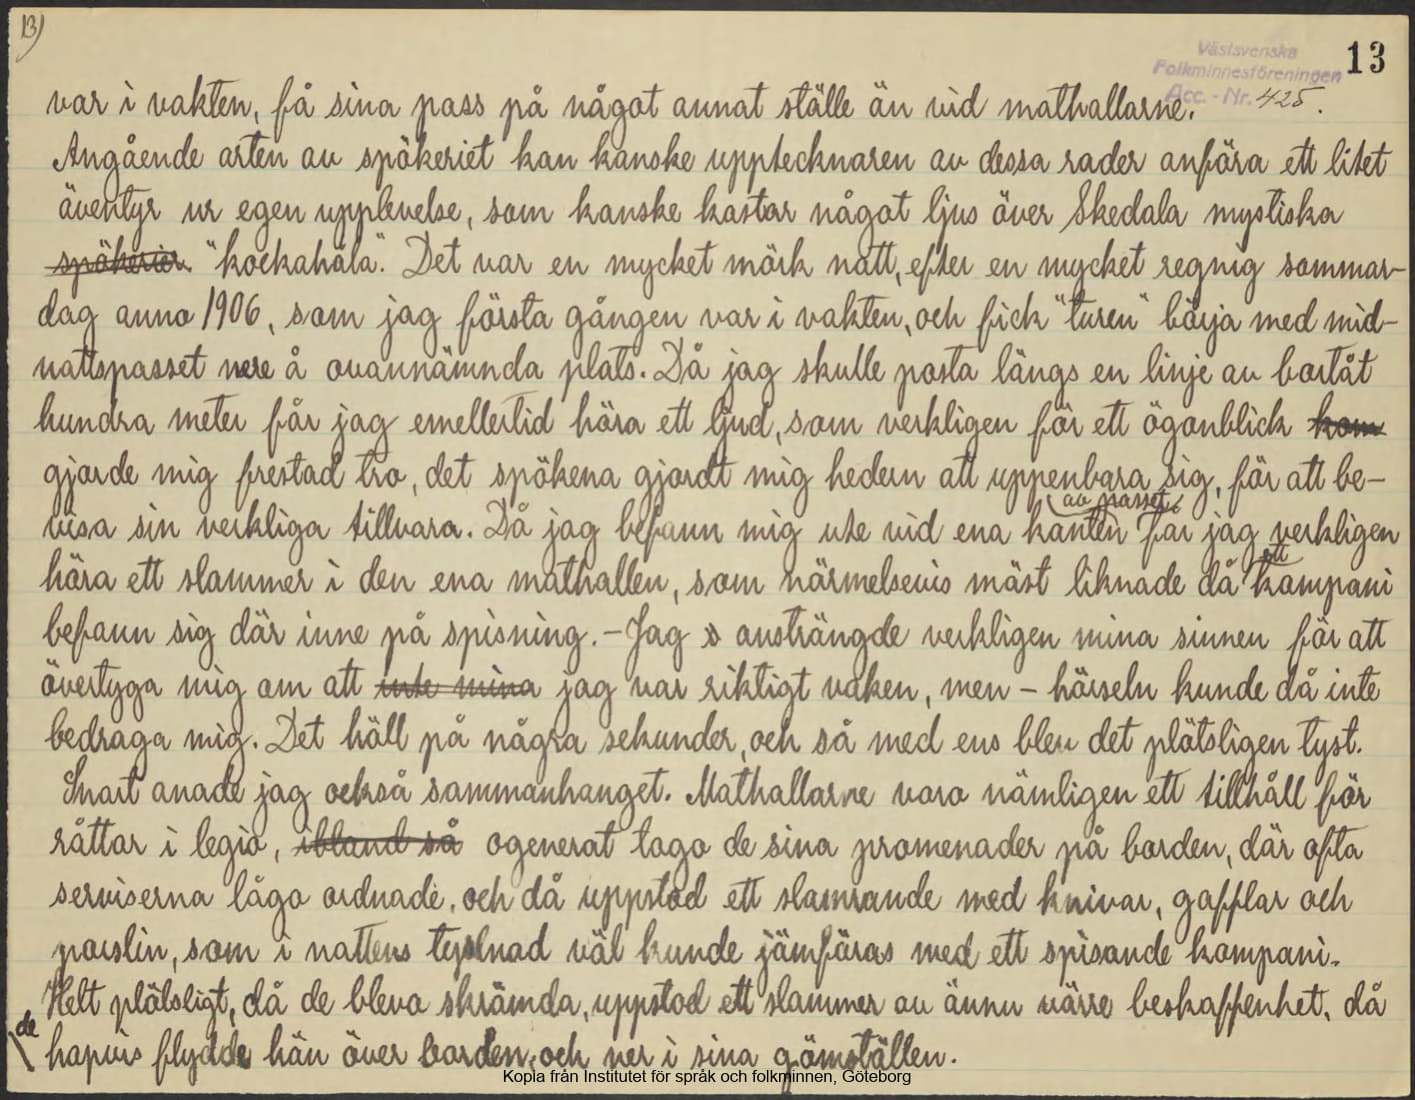 13)
13
Västsvenska
Folkminnesföreningen
Acc.-Nr. 425.
var i vakten, få sina pass på något annat ställe än vid mathallarne.
Angående arten av spökeriet kan kanske upptecknaren av dessa rader anföra ett litet
äventyr ur egen upplevelse, som kanske kastar något ljus över Skedala mystiska
spökerier "kockahåla". Det var en mycket mörk natt, efter en mycket regnig sommar-
dag anno 1906, som jag första gången var i vakten, och fick "turen" börja med mid-
nattspasset nere å ovannämnda plats. Då jag skulle posta längs en linje av bortåt
hundra meter får jag emellertid höra ett ljud, som verkligen för ett ögonblick kom
gjorde mig frestad tro, det spökena gjordt mig hedern att uppenbara sig, för att be-
visa sin verkliga tillvara. Då jag befann mig ute vid ena kanten av passet får jag verkligen
höra ett slammer i den ena mathallen, som närmelsevis mäst liknade då ett kompani
befann sig där inne på spisning. - Jag s ansträngde verkligen mina sinnen för att
övertyga mig om att inte mina jag var riktigt vaken, men - hörseln kunde då inte
bedraga mig. Det höll på några sekunder, och så med ens blev det plötsligen tyst.
Snart anade jag också sammanhanget. Mathallarne voro nämligen ett tillhåll för
råttar i legio, ibland så ogenerat togo de sina promenader på borden, där ofta
serviserna lågo ordnade, och då uppstod ett slamrande med knivar, gafflar och
porslin, som i nattens tystnad väl kunde jämföras med ett spisande kompani.
Helt plötsligt, då de blevo skrämda, uppstod ett slammer av ännu värre beskaffenhet, då
de hopvis flydde hän över borden, och ner i sina gömställen.
Kopia från Institutet för språk och folkminnen, Göteborg